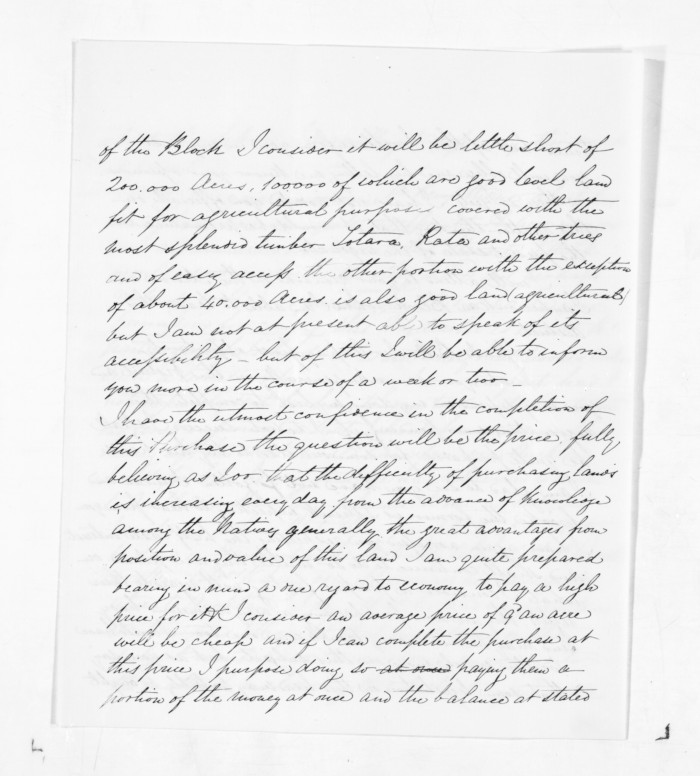 of the Block I consider it will be little short of
200.000 Acres, 100000 of which are good level land
fit for agricultural purposes covered with the
most splendid timber Totara, Rata and other trees
and of easy access the other portion with the exception
of about 40.000 Acres is also good land (agricultural)
but I am not at present able to speak of its
accessibility – but of this I will be able to inform
you more in the course of a week or two –
I have the utmost confidence in the completion of
this Purchase the question will be the price, fully
believing as I do that the difficulty of purchasing lands
is increasing every day from the advance of knowledge
among the Natives generally the great advantages from
position and value of this land I am quite prepared
bearing in mind a due regard to economy to pay a high
price for it & I consider an average price of an acre
will be cheap and if I can complete the purchase at
this price I purpose doing so at once paying them a
portion of the money at once and the balance at stated